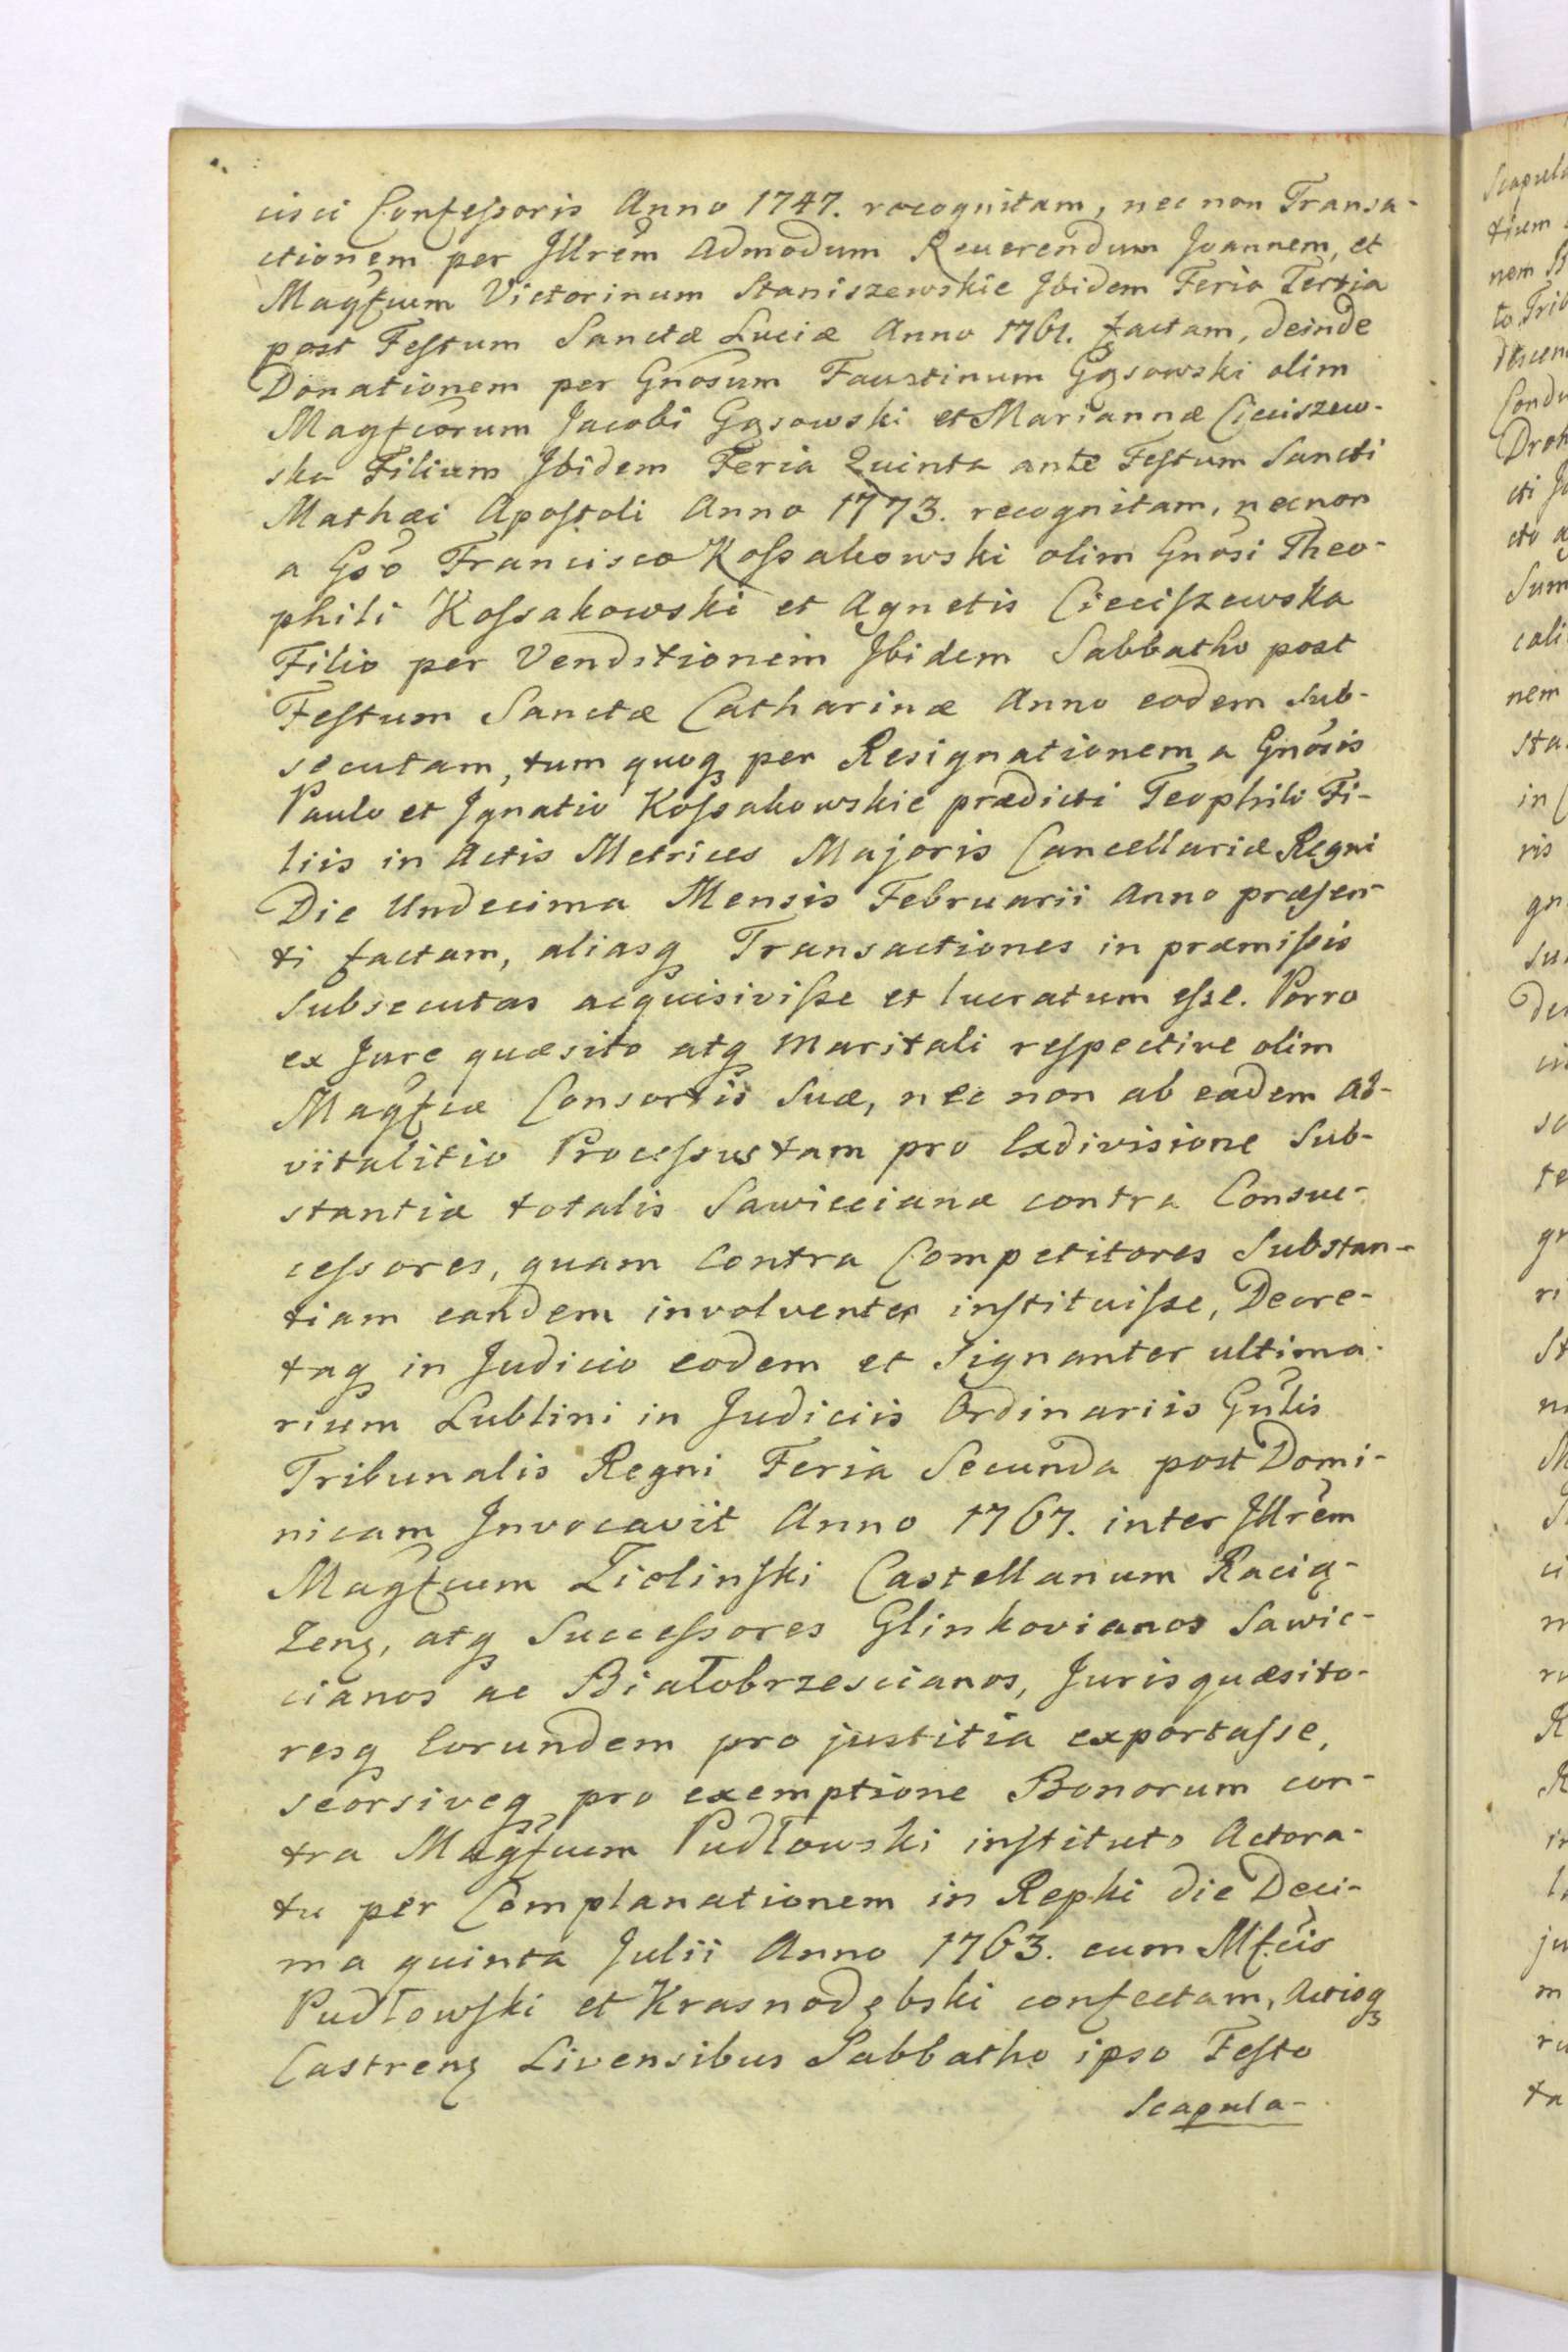 cisci Confeſsoris Anno 1747. recognitam, nec non Transa-
ctionem per Jllrem Admodum Reuerendum Joannem, et
Magfcum Victorinum Staniszewskie Jbidem Feria Tertia
post Feſtum Sanctæ Luciæ Anno 1761. factam, deinde
Donationem per Gnosum Faustinum Gąsowski olim
Magfcorum Jacobi Gąsowski et Mariannæ Cieciszew-
ska Filium Jbidem Feria Quinta ante Feſtum Sancti
Mathæi Apoſtoli Anno 1773. recognitam, necnon
a Gso Francisco Koſsakowski olim Gnosi Theo-
phili Koſsakowski et Agnetis Cieciſzewska
Filio per Venditionem Jbidem Sabbatho post
Feſtum Sanctæ Catharinæ Anno eodem Sub-
secutam, tum quoq per Resignationem a Gnosis
Paulo et Jgnatio Koſsakowskie prædicti Teophili Fi-
liis in Actis Metrices Majoris Cancellariæ Regni
Die Undecima Mensis Februarii Anno præſen-
ti factam, aliasq Transactiones in præmiſsis
Subsecutas acquisiviſse et lucratum eſse. Porro
ex Jure quæsito atq maritali reſpective olim
Magfcæ Consortis Suæ, nec non ab eadem Ad-
vitalitio Proceſsus tam pro Exdivisione Sub-
stantiæ totalis Sawiccianæ contra Consuc-
ceſsores, quam Contra Competitores Substan-
tiam eandem involventes inſtituiſse, Decre-
taq in Judicio eodem et Signanter ultima-
rium Lublini in Judiciis Ordinariis Gnlis
Tribunalis Regni Feria Secunda post Domi-
nicam Jnvocavit Anno 1767. inter Jllrem
Magfcum Zielinſki Castellanum Racią-
Zenz, atq Succeſsores Glinkovianos Sawic-
cianos ac Białobrzescianos, Jurisquæsito-
resq Eorundem pro justitia exportaſse,
seorsiveq pro exemptione Bonorum con-
tra Magfcum Pudłowski inſtituto Actora-
tu per Complanationem in Repki die Deci-
ma quinta Julii Anno 1763. cum Mfcis
Pudłowſki et Krasnodębski confectam, Actisq
Castrenz Livensibus Sabbatho ipso Feſto
Scapula-